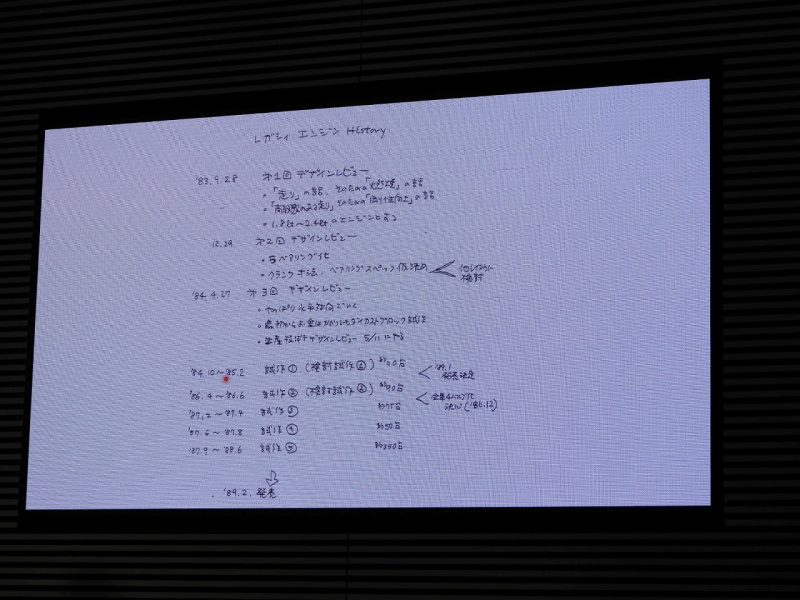 レガシィ エンジン History
'83.9.28 第1回 デザインレビュー
・「走り」の話、そのための「燃焼」の話
・「高級感のある走り」そのための「剛性向上」の話
・1.8ℓ~2.4ℓのエンジンとする
12.29 第2回 デザインレビュー
・5ベアリング化
・クランク寸法、ベアリングスペック仮決め
他レイアウト 検討
'84.4.27 第3回 デザインレビュー
・やっぱり水平対向でいく
・最初からお金はかかってもダイカストブロック試作
・生産技術デザインレビュー 5/11にやる
'84.10~'85.2 試作① (検討試作①) 約20台
'89.1 発売決定
'86.4~'86.6 試作② (検討試作②) 約90台
('86.12)
'87.2~'87.4 試作③ 約75台
'87.6~'87.8 試作④ 約50台
'87.9~'88.6 試作⑤ 約350台
'89.2. 発売